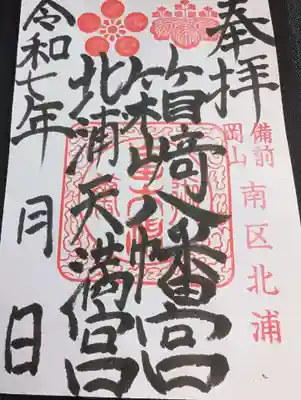 奉拝
備前
岡山
南区北浦
箱崎八幡宮
北浦天満宮
令和七年 月 日